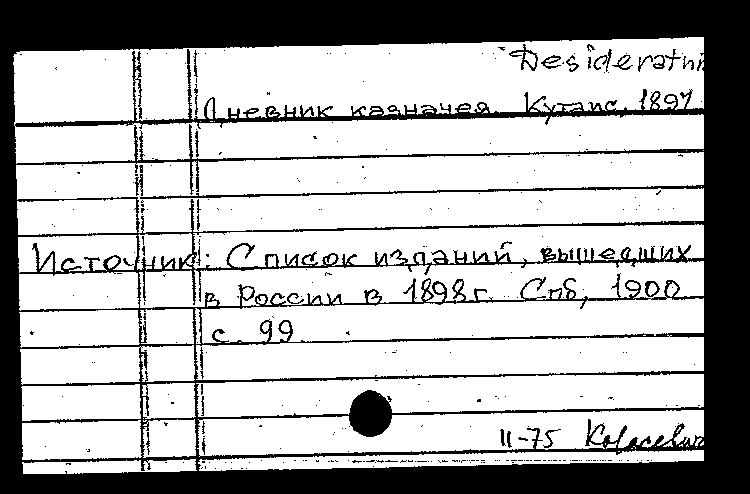 Desideratni
Дневник казначея. Кутаис, 1897
Источник: Список изданий, вышедших
в России в 1898г. Спб, 1900
с. 99
11-75